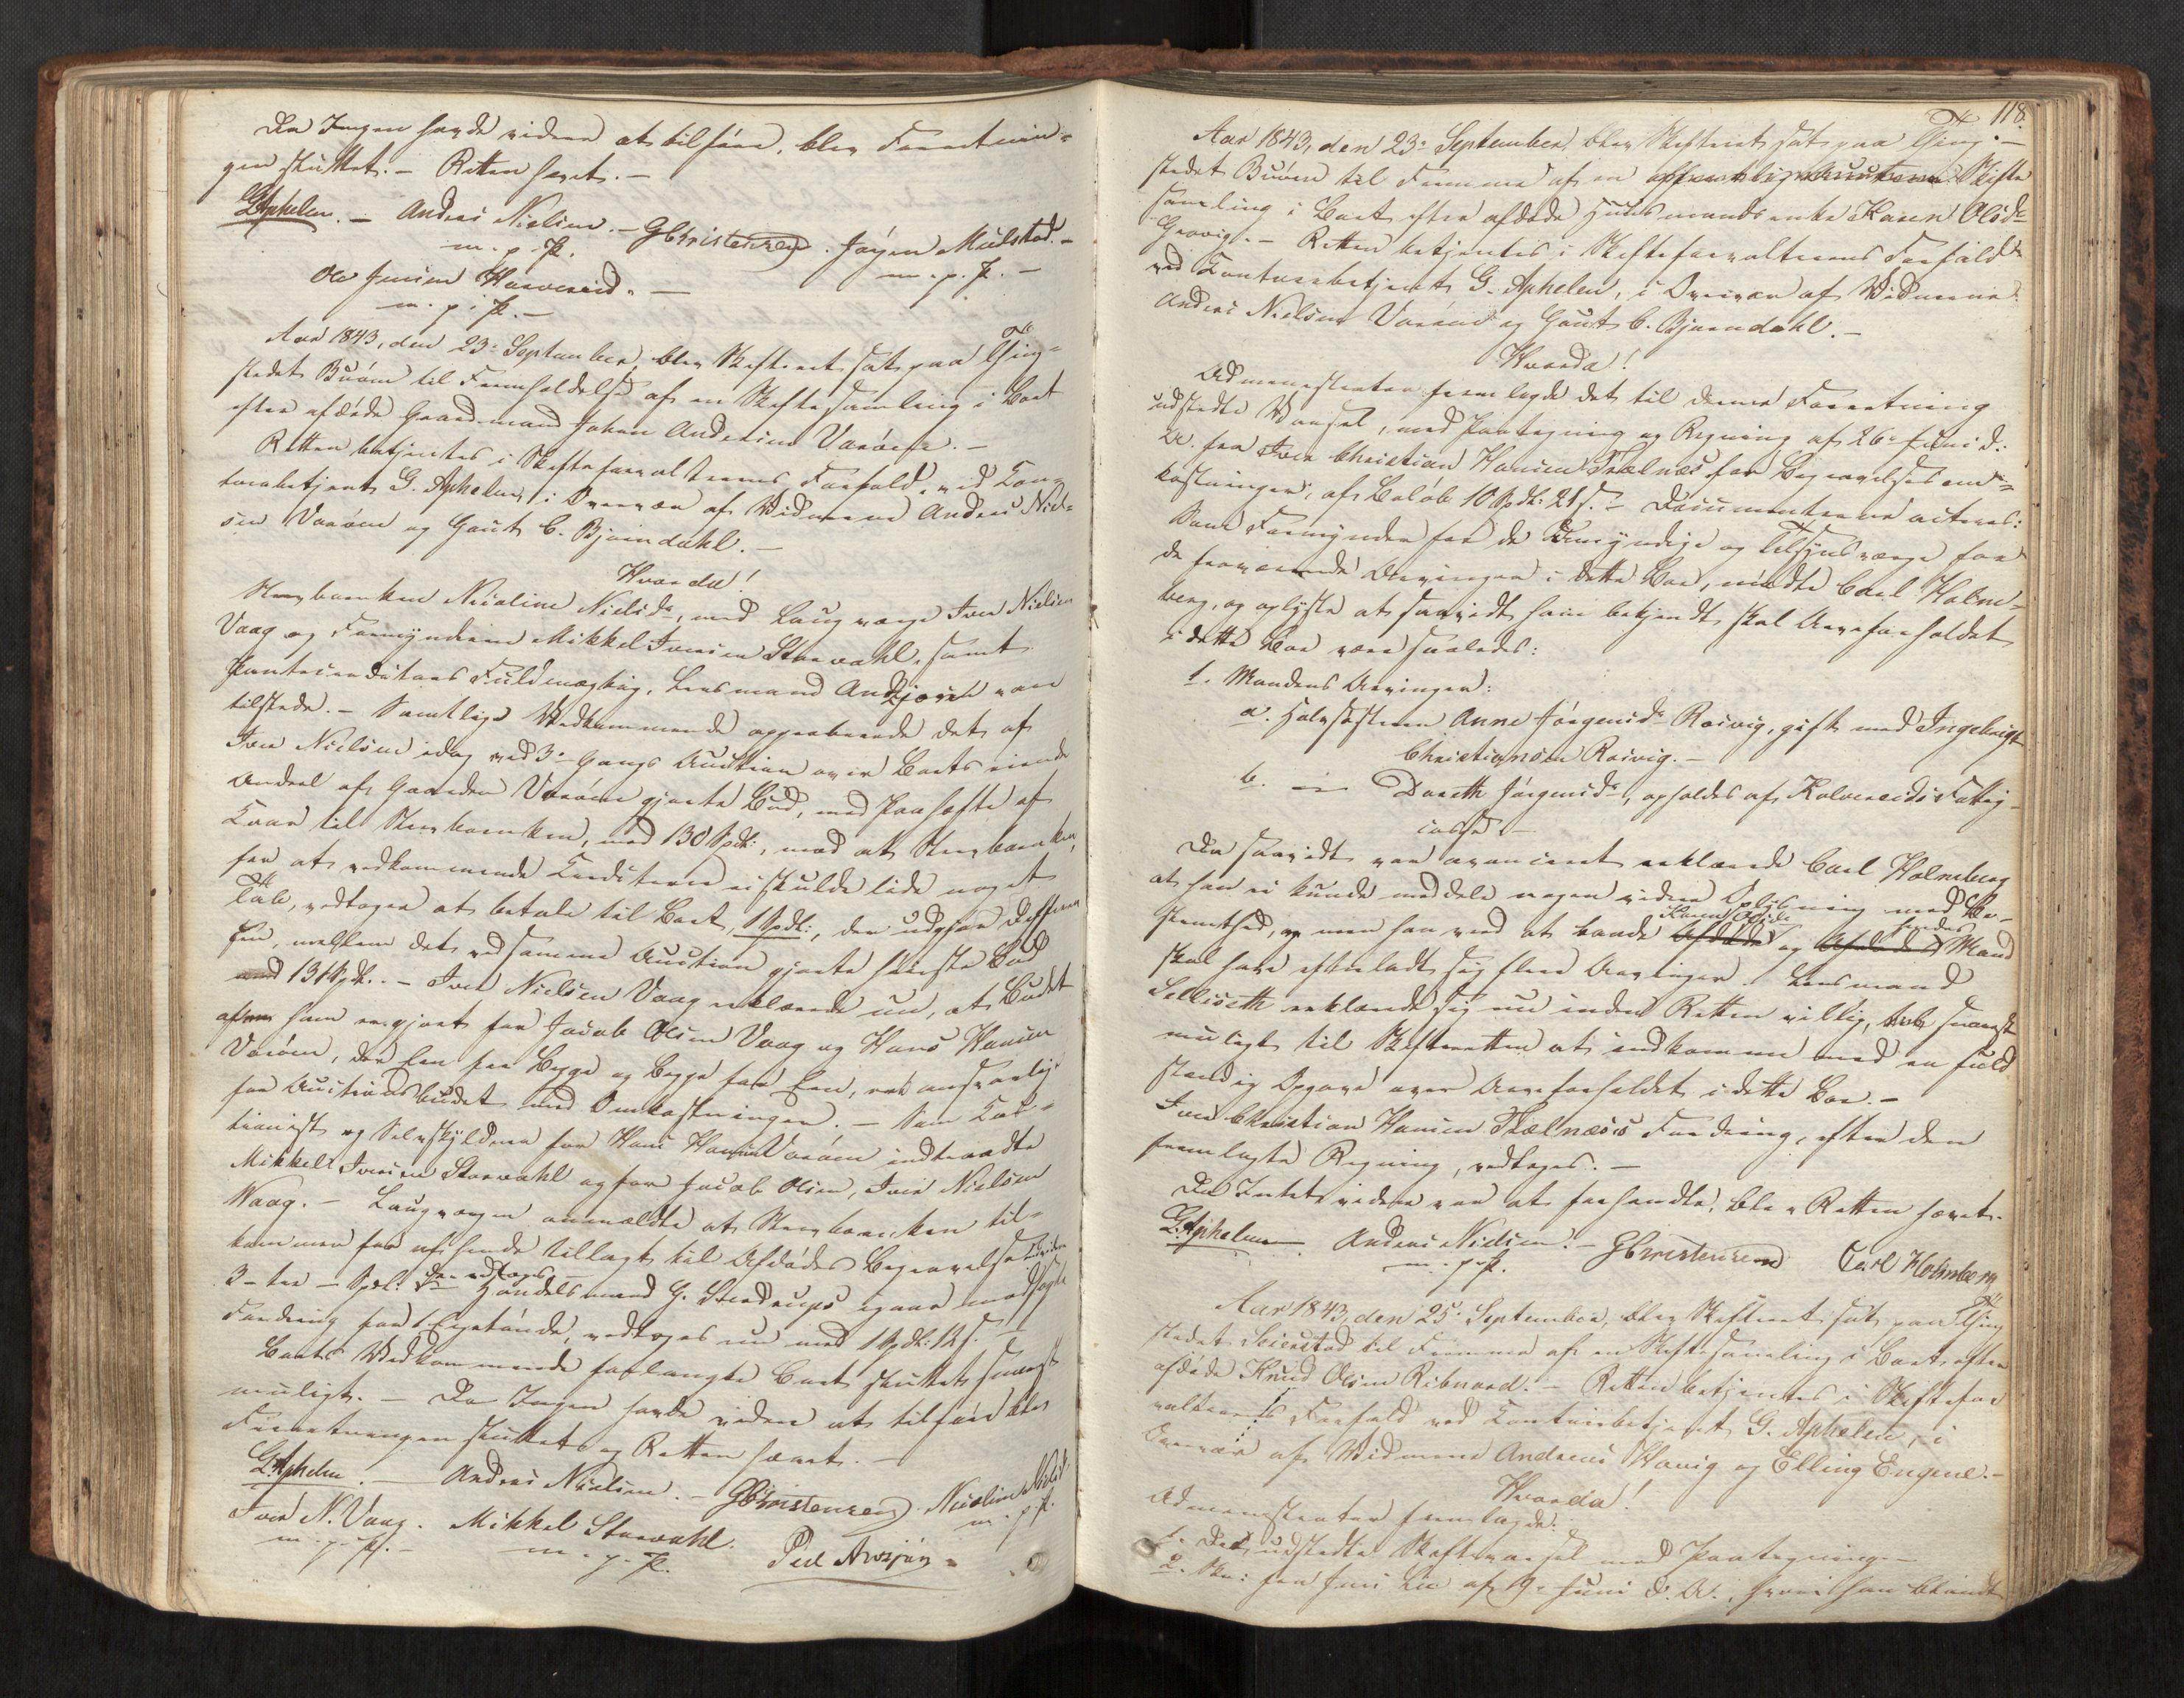 Da Ingen havde videre at tilføre, blev Forretnin-
gen sluttet. - Retten hævet. -
G. Aphelen. - Anders Nielsen. - G Christensen. Jørgen Mulstad. -
m. p. P. m. p. P. -
Ole Jensen Horvereid. -
m. p. P. -
Aar 1843, den 23de September, blev Skifteret sat paa Thing-
stedet Buøen til Fremholdelse af en Skiftesamling i Boet
efter afdøde Gaardmand Johan Andersen Varøen. -
Retten betjentes i Skifteforvalterens Forfald, ved Con-
toirbetjent G. Aphelen, i Overvær af Vidnerne Anders Niel-
sen Varøen og Gaut C. Bjørndahl. -
Hvorda!
Sterboenken Nicoline Nielsdr, med Laugværge Iver Nielsen
Vaag og Formynderen Mikkel Iversen Storvahl, samt
Panteereditors Fuldmægtig, Lensmand Andsjøen vare
tilstede. - Samtlige Vedkommende approberede det af
Iver Nielsen idag ved 3die Gangs Auction over Boets eiende
Andeel af Gaarden Varøen gjorte Bud, med Paahæfte af
Kaar til Sterboenken, med 130 Spdl:, mod at Sterboenken,
for at vedkommende Creditorer ei skulde lide noget
Tab, vedtager at betale til Boet, 1 Spdl:, der udgjør Differen-
sen, mellem det ved samme Auction gjorte høieste Bud
131 Spdl. - Iver Nielsen Vaag erklærede nu, at Budet
af ham er gjort for Jacob Olsen Vaag og Hans Hansen
Varøen, der Een for Begge og Begge for Een, ere ansvarlige
for Auctionsbudet med Omkostninger. - Som Cau-
tionist og Selvskyldner for Hans Hansen Varøen indtraadte
Mikkel Iversen Storvahl og for Jacob Olsen, Iver Nielsen
Waag. - Laugværgen anmældte at Sterboenken til-
kommer for af hende tillagt til Afdødes Begravelse
3 - tre - Spdl. der vedtages Handelsmand G. Svendrups igaar modsagte
Fordring for , vedtoges nu med 1 Spdl: 12 s. -
Boets Vedkommende forlangte Boet sluttet snarest
muligt. - Da Ingen havde videre at tilføre blev
Forretningen sluttet og Retten hævet. -
G. Aphelen. - Anders Nielsen. - G Christensen. Nicoline Nielsd.
Iver N. Vaag. Mikkel Storvahl. m. p. P.
m. p. P. - m. p. P. Ped Andsjøn
118.
Aar 1843, den 23de September blev Skifteret sat paa Thing-
stedet Buøen til Fremme af en Skifte
samling i Boet efter afdøde Huusmandsenke Karen Olsdr
Grovig. - Retten betjentes i Skifteforvalterens Forfald
ved Contoirbetjent G. Aphelen, i Overvær af Vidnerne
Anders Nielsen Varøen og Gaut C. Bjørndahl. -
Hvorda!
Administrator fremlagde det til denne Forretning
udstedte Varsel, med Paategning og Regning af 26de Juni d.
A. fra Iver Christian Hansen Thælnæs for Begravelsesom-
kostninger, af Beløb 10 Spdl: 21 s. - Documenterne acteres:
Som Formynder for de Umyndige og Tilsynsværge for
de fraværende Arvinger i dette Boe, mødte Carl Holm-
berg, og oplyste at saavidt ham bekjendt, skal Arveforholdet
i dette Boe være saaledes:
1. Mandens Arvinger:
a. Halvsøsteren Anne Jørgensdr Roivig, gift med Ingebrigt
Christiansen Roivig. -
b. — Dorethe Jørgensdr, opholdes af Kolvereids Fattig-
casse. -
Da saavidt var avanceret erklærede Carl Holmberg
at han ei kunde meddele nogen videre Oplysning med Be-
Karen Olsdr hendes
stemthed, men han veed at baade Afdøde og Afdødes Mand
skal have efterladt sig flere Arvinger. Lensmand
Selliseth erklærede sig nu inden Retten villig, snarest
muligt til Skifteretten at indkomme med en fuld
stændig Opgave over Arveforholdet i dette Boe. -
Iver Christian Hansen Thælnæs's Fordring, efter den
fremlagte Regning, vedtoges. -
Da Intet videre var at forhandle, blev Retten hævet.
G. Aphelen Anders Nielsen. - G Christensen Carl Holmberg
m. p. P.
Aar 1843, den 25de September, blev Skifteret sat paa Thing
stedet Seierstad til Fremme af en Skiftesamling i Boet efter
afdøde Knud Olsen Ribnord. - Retten betjentes i Skiftefor
valterens Forfald ved Contoirbetjent G. Aphelen, i
Overvær af Vidnerne Andreas Havig og Elling Engene. -
Hvorda!
Administrator fremlagde:
1. Det udstedte Skiftevarsel med Paategninger
2. Skr: fra Jens Lie af 19de Juni d. A., hvori han blandt